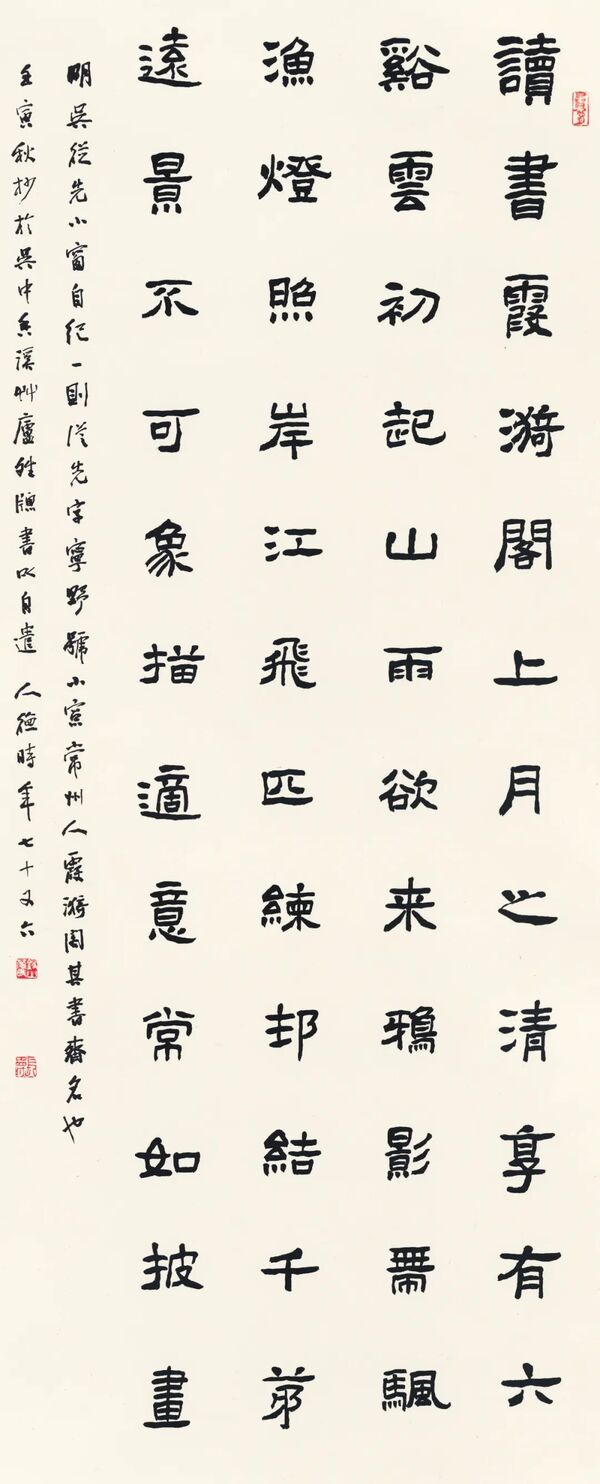 讀書霞漪閣上月之清享有六
谿雲初起山雨欲来鴉影帶颿
漁燈照岸江飛匹練邨結千茅
遠景不可象描適意常如披畫
明吳從先小窗自紀一則從先字寧野號小窓常州人霞漪閣其書齋名也
壬寅秋杪於吳中香溪艸廬牕書以自遣 人德時年七十又六